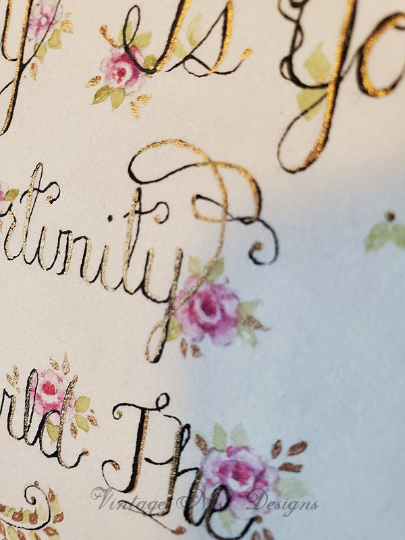 y is Yo
rtunity
rld The
Vintage Designs